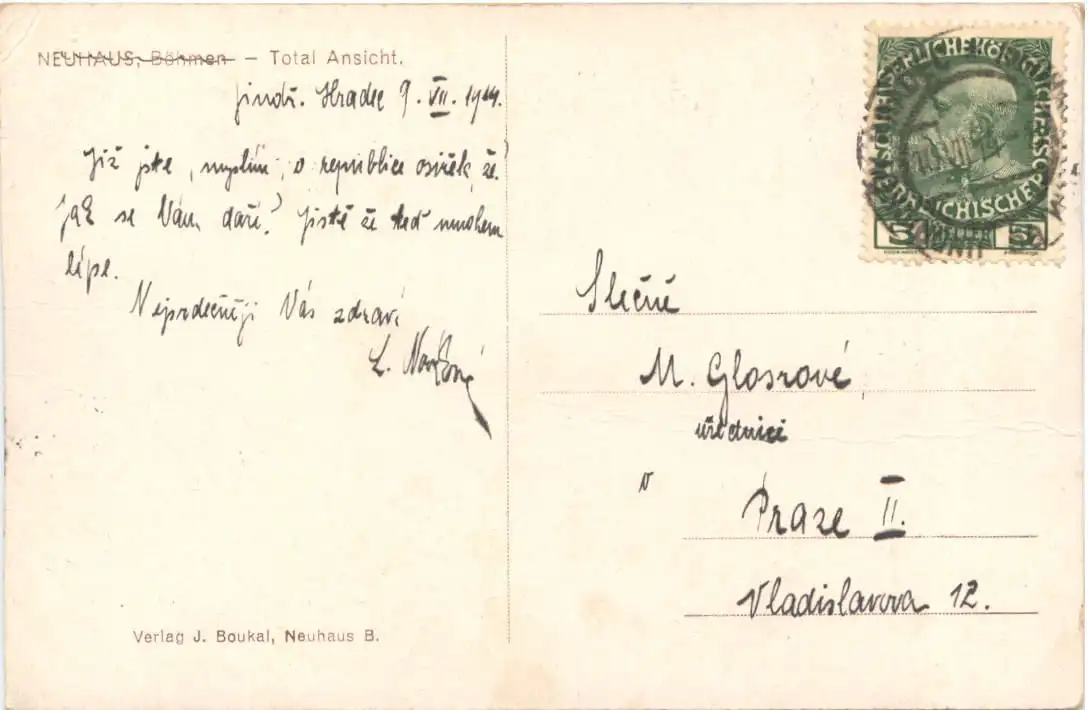 NEUHAUS, Böhmen – Total Ansicht.
Jindř. Hradec 9. VII. 1914.
Již jste, myslím, o republice osiřelé, že?
Jak se Vám daří? Jistě že teď mnohem
lépe.
Nejsrdečněji Vás zdraví
L. Novotná
Slečně
M. Glosrové
úřednici
v
Praze II.
Vladislavova 12.
Verlag J. Boukal, Neuhaus B.
5 HELLER 5